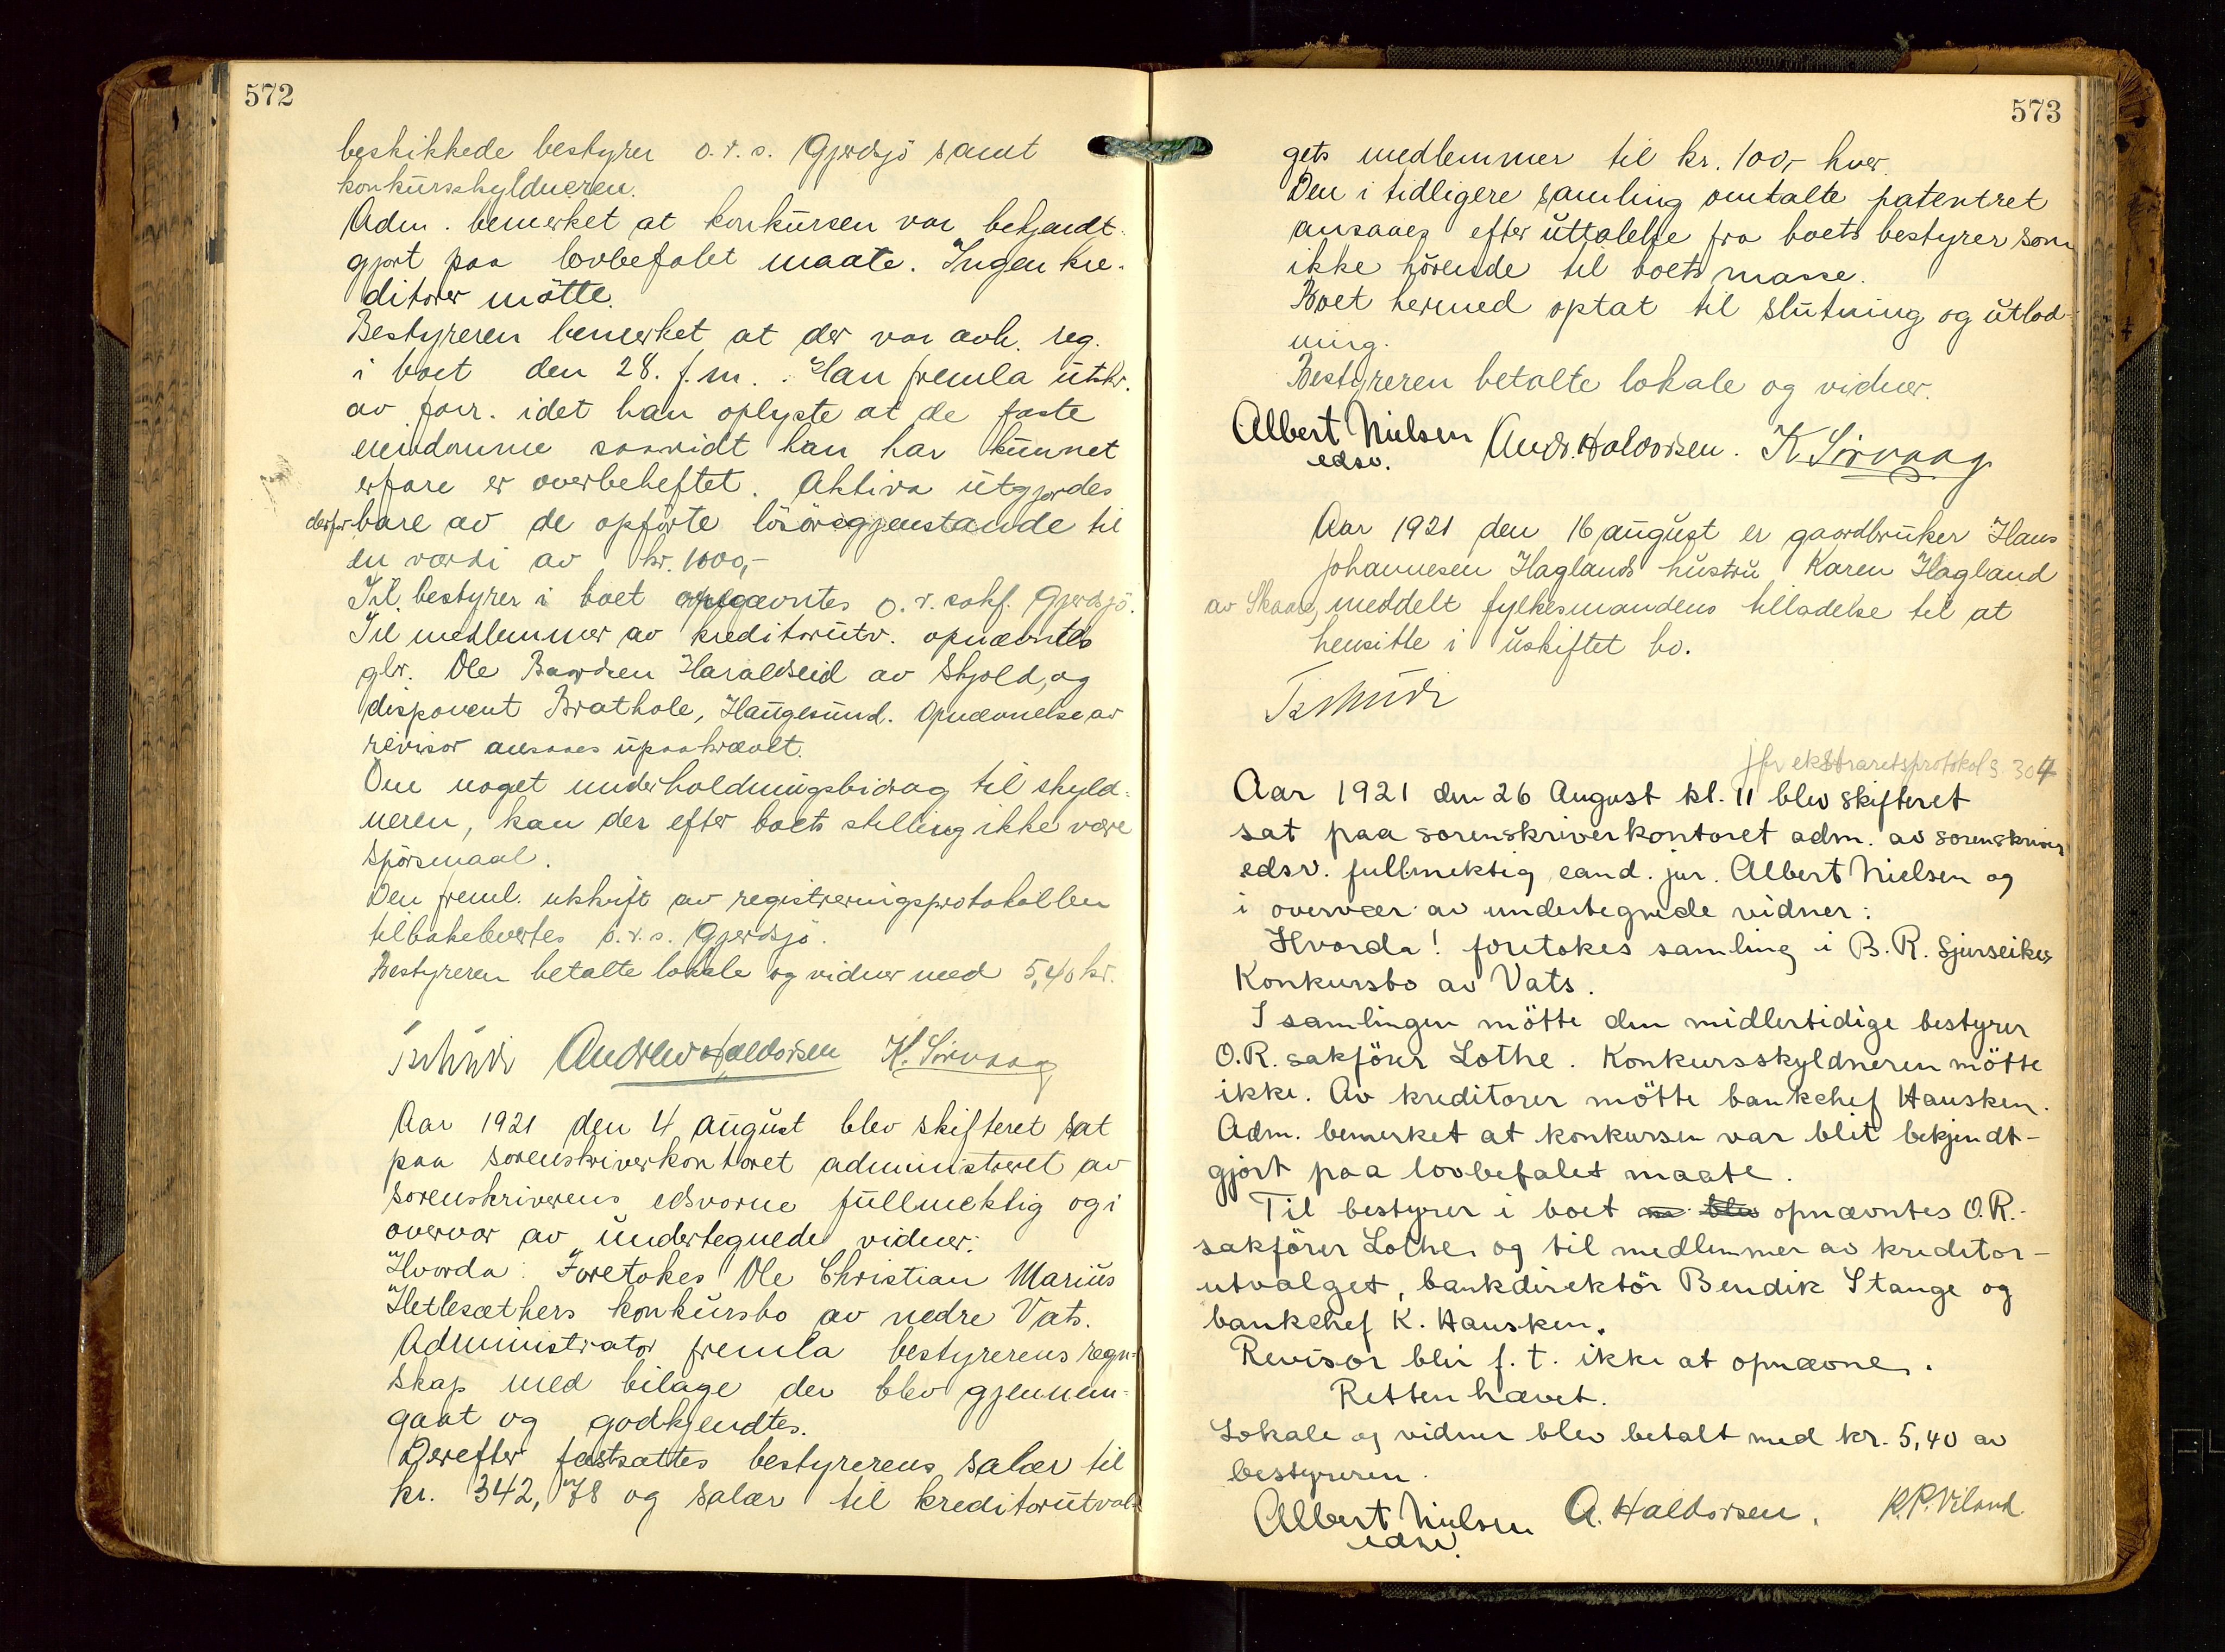 572
beskikkede bestyrer o.r.s. Gjerdsjö samt
konkursskyldneren.
Adm. bemerket at konkursen var bekjendt-
gjort paa lovbefalet maate. Ingen kre-
ditorer mötte.
Bestyreren bemerket at der var avh. reg.
i boet den 28. f.m. Han fremla utskr.
av forr. idet han oplyste at de faste
eiendomme saavidt han har kunnet
erfare er overbeheftet. Aktiva utgjordes
derfor bare av de opförte lösöregjenstande til
en værdi av kr. 1000,-
Til bestyrer i boet opnævntes o.r.sakf. Gjerdsjö.
Til medlemmer av kreditorutv. opnævntes
gbr. Ole Baardsen Haraldseid av Skjold, og
disponent Brathole, Haugesund. Opnævnelse av
revisor ansaaes upaakrævet.
Om noget underholdningsbidrag til skyld-
neren, kan der efter boets stilling ikke være
spörsmaal.
Den freml. utskrift av registreringsprotokollen
tilbakelevertes o.r.s. Gjerdsjö.
Bestyreren betalte lokale og vidner med 5,40 kr.
Tschudi Andrew Haldorsen K. Sörvaag
Aar 1921 den 4 august blev skifteret sat
paa sorenskriverkontoret administreret av
sorenskriverens edsvorne fullmektig og i
overvær av undertegnede vidner:
Hvorda: Foretokes Ole Christian Marius
Hetlesæthers konkursbo av nedre Vats.
Administrator fremla bestyrerens regn-
skap med bilage der blev gjennem-
gaat og godkjendtes.
Derefter fastsattes bestyrerens salær til
kr. 342,78 og salær til kreditorutval-
573
gets medlemmer til kr. 100,- hver.
Den i tidligere samling omtalte patentret
ansaaes efter uttalelse fra boets bestyrer som
ikke hörende til boets masse.
Boet hermed optat til slutning og utlod-
ning.
Bestyreren betalte lokale og vidner.
Albert Nielsen Andr. Haldorsen. K. Sörvaag
edsv.
Aar 1921 den 16 august er gaardbruker Hans
Johannesen Haglands hustru Karen Hagland
av Skaare, meddelt fylkesmandens tilladelse til at
hensitte i uskiftet bo.
Tschudi
jfr ekstraretsprotokol s. 304
Aar 1921 den 26 August kl. 11 blev skifteret
sat paa sorenskriverkontoret adm. av sorenskriver
edsv. fullmektig cand. jur. Albert Nielsen og
i overvær av undertegnede vidner:
Hvorda! foretokes samling i B. R. Sjurseikes
Konkursbo av Vats.
I samlingen mötte den midlertidige bestyrer
O.R. sakförer Lothe. Konkursskyldneren mötte
ikke. Av kreditorer mötte bankchef Hausken.
Adm. bemerket at konkursen var blit bekjendt-
gjort paa lovbefalet maate.
Til bestyrer i boet blev opnævntes O.R.-
sakförer Lothe, og til medlemmer av kreditor-
utvalget, bankdirektör Bendik Stange og
bankchef K. Hausken.
Revisor blir f. t. ikke at opnævne.
Retten hævet.
Lokale og vidner blev betalt med kr. 5,40 av
bestyreren.
Albert Nielsen A. Haldorsen. K.P. Viland.
edsv.